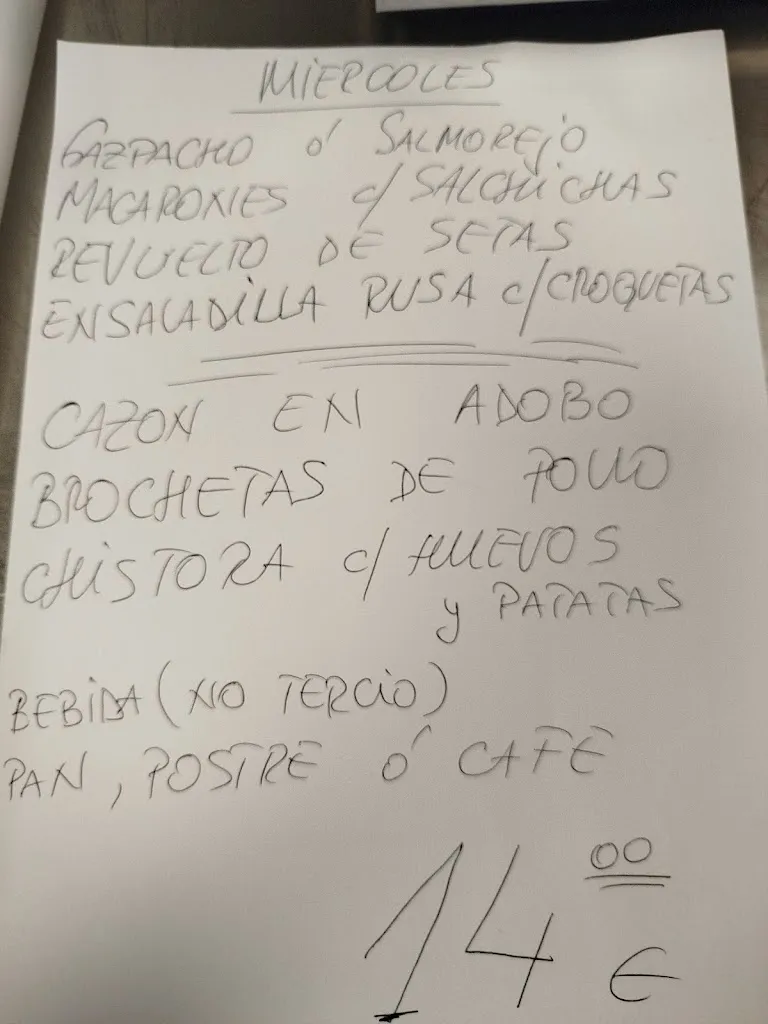 MIERCOLES
GAZPACHO ó SALMOREJO
MACARONES c/ SALCHICHAS
REVUELTO DE SETAS
ENSALADILLA RUSA c/CROQUETAS
CAZON EN ADOBO
BROCHETAS DE POLLO
CHISTORA c/ HUEVOS
y PATATAS
BEBIDA (NO TERCIO)
PAN, POSTRE ó CAFE
14 00 €